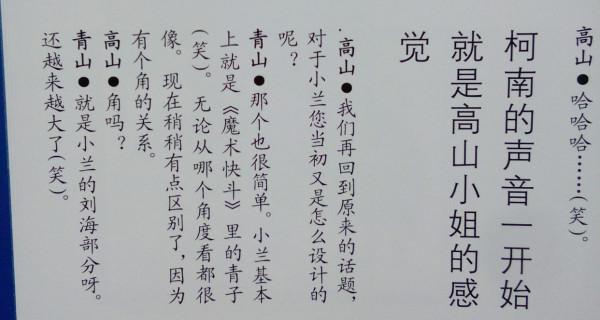 高山●哈哈哈……(笑)。
柯南的声音一开始
就是高山小姐的感
觉
·高山●我们再回到原来的话题，
对于小兰您当初又是怎么设计的
呢？
青山●那个也很简单。小兰基本
上就是《魔术快斗》里的青子
(笑)。无论从哪个角度看都很
像。现在稍稍有点区别了，因为
有个角的关系。
高山●角吗？
青山●就是小兰的刘海部分呀。
还越来越大了(笑)。